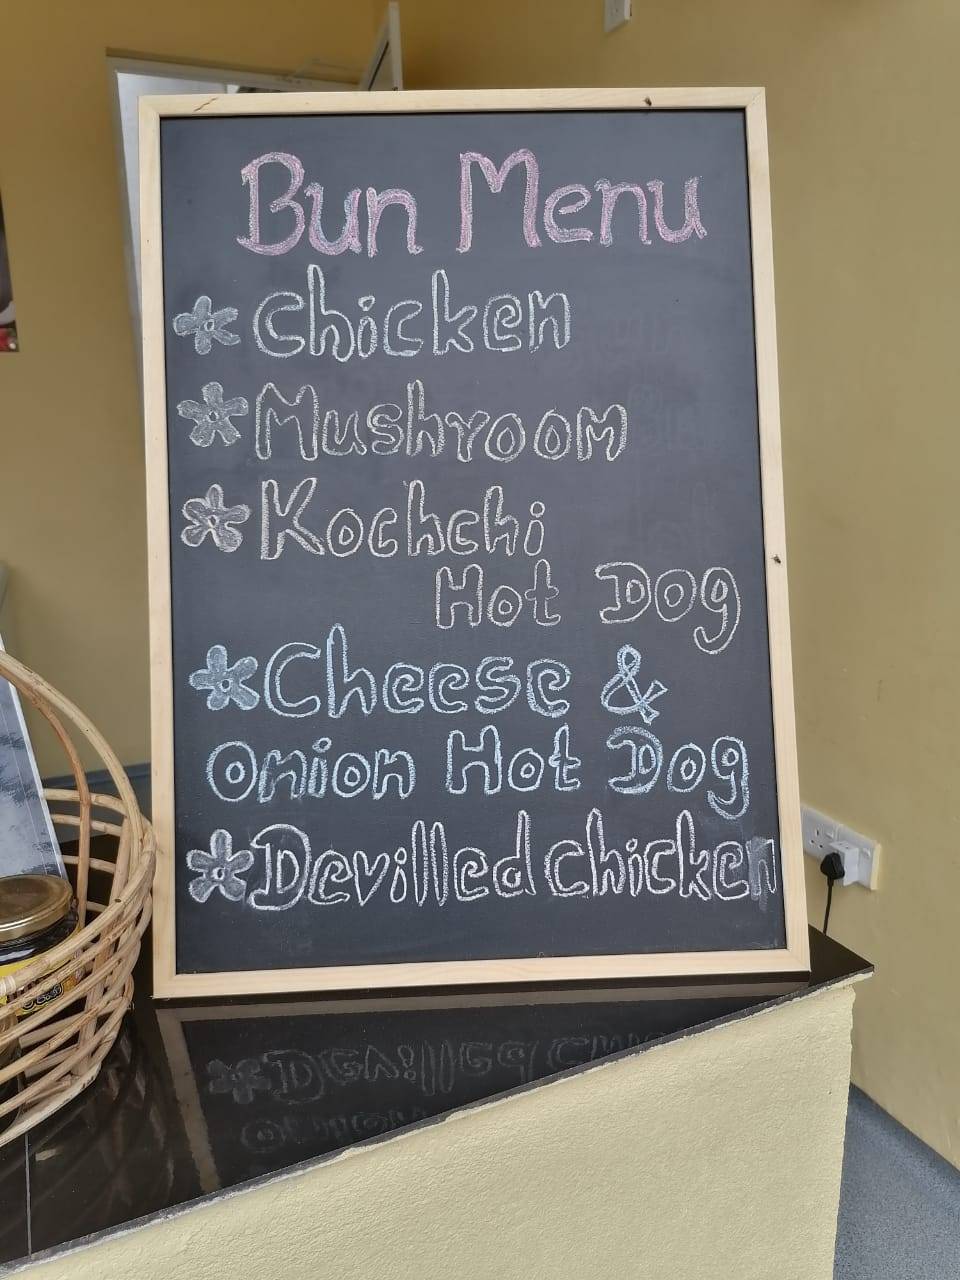 Bun Menu
* Chicken
* Mushroom
* Kochchi
Hot Dog
* Cheese &
Onion Hot Dog
* Devilled chicken